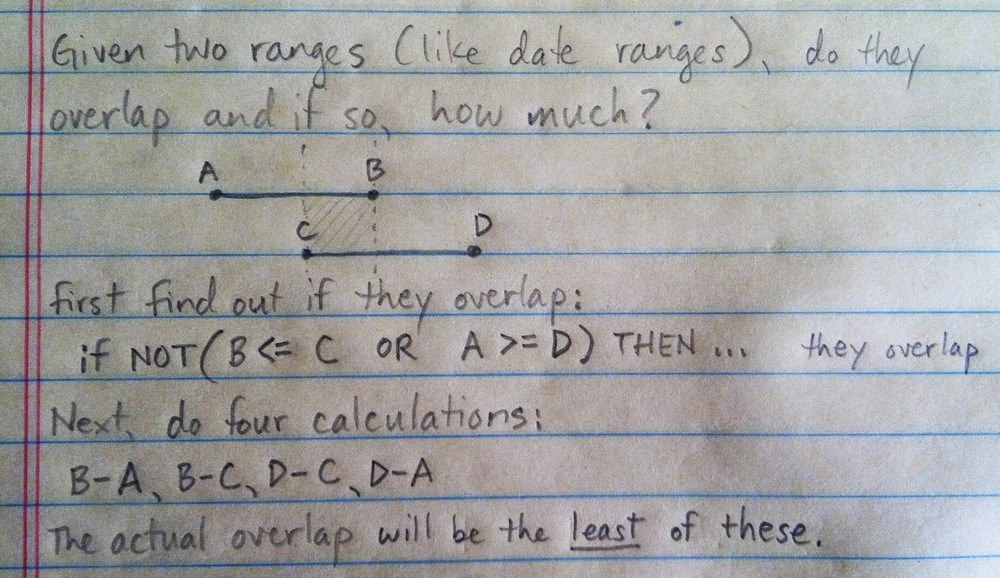 Given two ranges (like date ranges), do they
overlap and if so, how much?
A B
C D
first find out if they overlap:
if NOT(B <= C OR A >= D) THEN ... they overlap
Next, do four calculations:
B-A, B-C, D-C, D-A
The actual overlap will be the least of these.